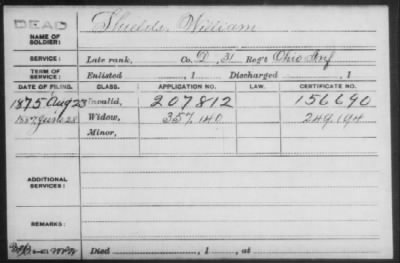 DEAD
NAME OF SOLDIER: Shields, William
SERVICE: Late rank, Co. D, 31 Reg't Ohio Inf
TERM OF SERVICE: Enlisted , 1 Discharged , 1
DATE OF FILING. CLASS. APPLICATION NO. LAW. CERTIFICATE NO.
1875 Aug 23 Invalid, 207812 156690
1887 June 28 Widow, 357140 249194
Minor,
ADDITIONAL SERVICES:
REMARKS:
Died , 1 , at